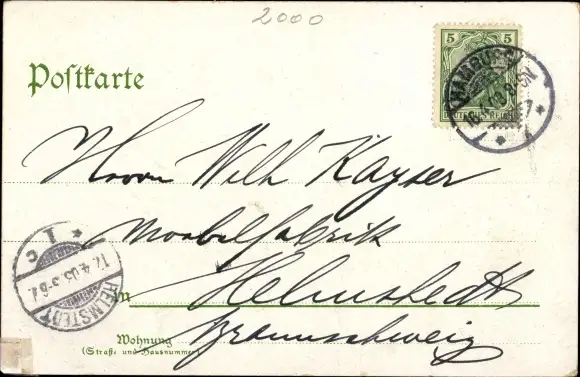 2000
Postkarte
5 5
DEUTSCHES REICH
HAMBURG
Herrn Wilh Kayser
Moebelfabrik
in Helmstedt
Braunschweig
Wohnung
(Straße und Hausnummer)
* 1 c
17.4.03.5-6N.
HELMSTEDT